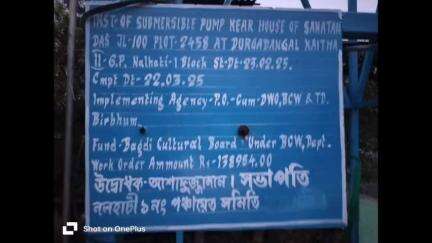 INST-OF SUBMERSIBLE PUMP NEAR HOUSE OF SANATAN
DAS JL-100 PLOT-2458 AT DURGADANGAL KAITHA
II-G.P. Nalhati-1 Block St-Dt-23.02.25.
Cmpt Dt- 22.03.25
Implementing Agency-P.O.-Cum-DWO,BCW & TD.
Birbhum.
Fund-Bagdi Cultural Board Under BCW, Dept.
Work Order Ammount Rs-138954.00
উদ্বোধক-আশাদুজ্জামান। সভাপতি
নলহাটী ১নং পঞ্চায়েত সমিতি
Shot on OnePlus